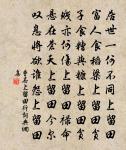 居世一何不同上留田
富人食稻與粱上留田貧
子食糟與糠上留田貧
賤亦何傷上留田祿命
懸在蒼天上留田今爾
嘆息將欲誰怨上留田
曹丕上留田行